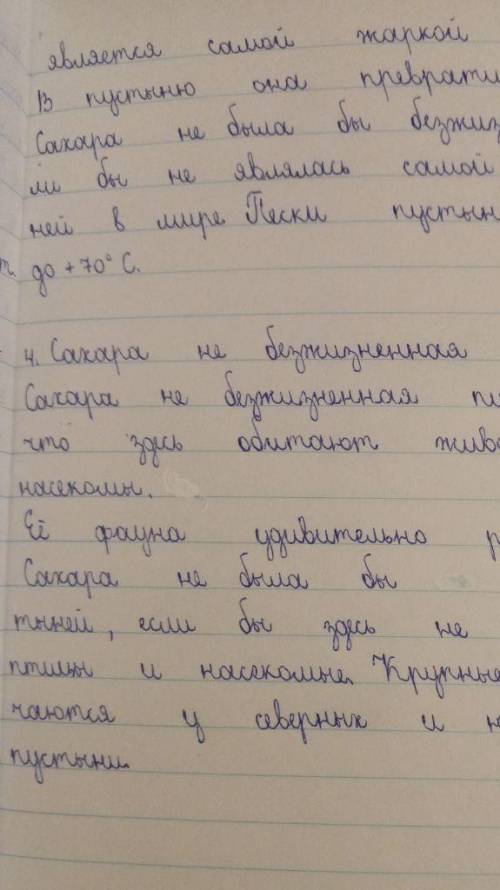 является самой жаркой
В пустыню она преврати
Сахара не была бы безжиз
ли бы не являлась самой
ней в мире Пески пустын
до +70°С.
4. Сахара не безжизненная
Сахара не безжизненная п
что здесь обитают живо
насекомы.
Её фауна удивительно р
Сахара не была бы
тыней, если бы здесь не
птицы и насекомые. Крупные
чаются у северных и
пустыни.